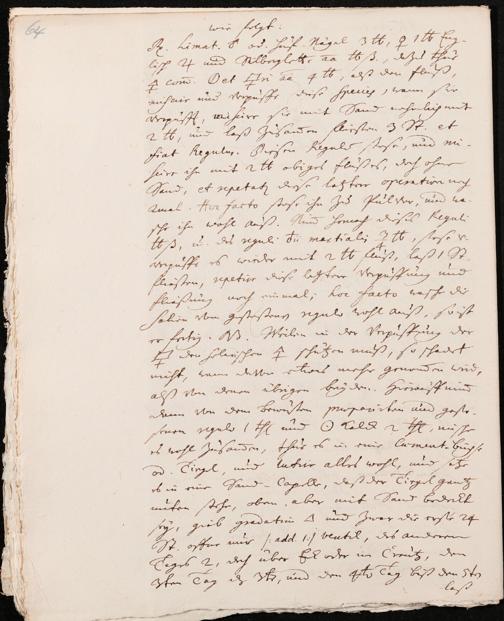 64
wie folgt:
Rx. Limat. ♂ od. Huf-Nägel 3 ℔, 1 ℔ Eng-
lisch ♃ und Silberglett aa ℔ ß, dazu thue
com. Oct aa 4 ℔, aus dem fluß,
mischs und verpuffs diese species, wann sie
verpufft, mischire sie mit Sand
2 ℔, und laß zusamen fliessen 3 St. et
fiat Regulus. Diesen Regulus stoße, und mi-
schire ihn mit 2 ℔ obiges flußes, doch ohne
Sand, et repetatur diese letztere operation noch
2mal. Hoc facto stoße ihn zu Pulver, und wa-
sche ihn wohl auß. Nim hernach dieses Reguli
℔ ß, u. des reguli martialis ℔, stoße u.
verpuffe es wieder mit 2 ℔ fluß, laß 1 St.
fliessen, repetire diese letztere Verpuffung und
fliessung noch einmal; hoc facto wasche die
salia vom gestossenen regulo wohl auß, so ist
er fertig. NB. Weilen in der Verpuffung der
den schützen muß, so schadet
nicht, wann davon etwas mehr genommen wird,
alß von denen übrigen beyden. Hierauf nim
dann von dem bewusten praeparirten und gesto-
ßenen regulo 1 ℔ und 2 ℔, mische
es wohl zusamen, thue es in eine
od. Tiegel, und lutire alles wohl, und setze
es in eine Sand-Capelle, daß der Tiegel gantz
unten stehe, oben aber mit Sand bedeckt
sey, gieb gradatim △ und zwar die erste 24
St. offne nur /: add 1:/ ventil, des anderen
Tages 2, doch über Eck oder im Creutz, den
3ten Tag das 3te, und den 4ten Tag biß den 5ten
laß